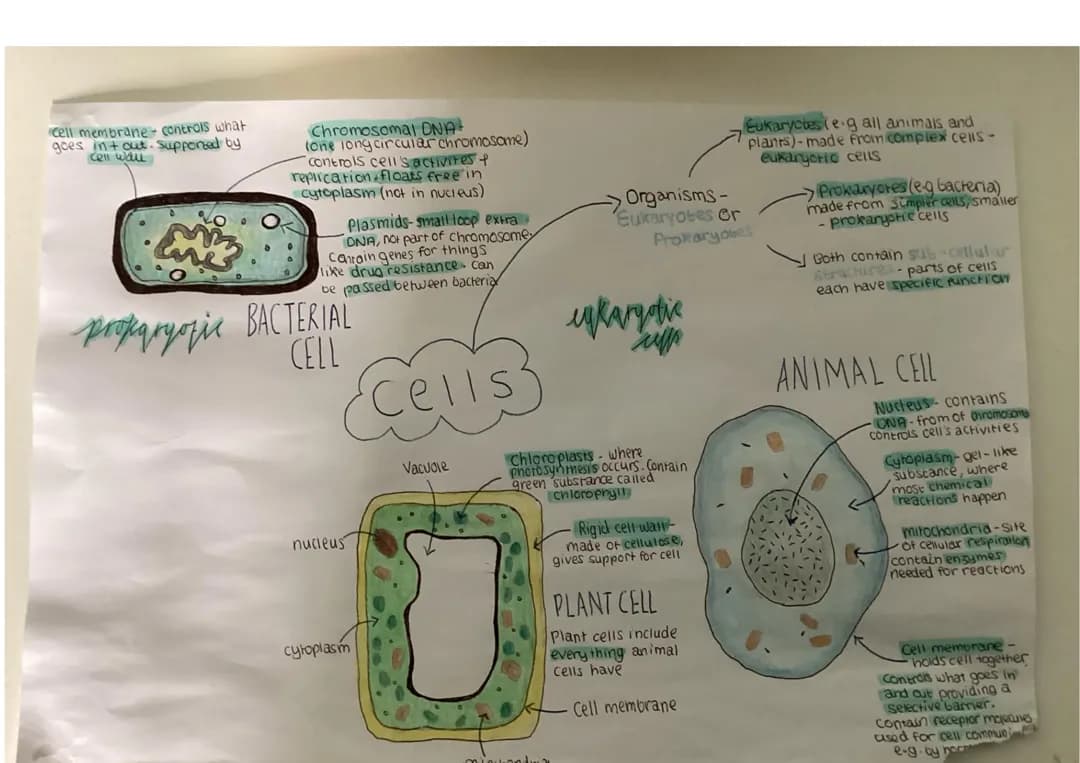 cell membrane - controls what
goes in + out. supported by
cell wall
Chromosomal DNA -
(one long circular chromosome)
controls cell's activites +
replication. floats free in
cytoplasm (not in nucleus)
Plasmids - small loop extra
DNA, not part of chromosome.
Contain genes for things
like drug resistance. Can
be passed between bacteria
prokaryotic
BACTERIAL
CELL
Cells
Organisms -
Eukaryotes or
Prokaryotes
Eukaryotes (e.g all animals and
plants) - made from complex cells -
eukaryotic cells
Prokaryotes (e.g bacteria)
made from simpler cells, smaller
- prokaryotic cells
Both contain sub-cellular
structures - parts of cells
each have specific function
eukaryotic
cells
ANIMAL CELL
Nucleus - contains
DNA - from of chromosome
controls cell's activities
Cytoplasm - gel-like
substance, where
most chemical
reactions happen
mitochondria - site
of cellular respiration
contain enzymes
needed for reactions
Cell membrane -
holds cell together,
controls what goes in
and out providing a
selective barrier.
Contain receptor molecules
used for cell
e.g. by
Vacuole
Chloroplasts - where
photosynthesis occurs. Contain
green substance called
chlorophyll
nucleus
Rigid cell wall -
made of cellulose,
gives support for cell
PLANT CELL
Plant cells include
everything animal
cells have
cytoplasm
Cell membrane